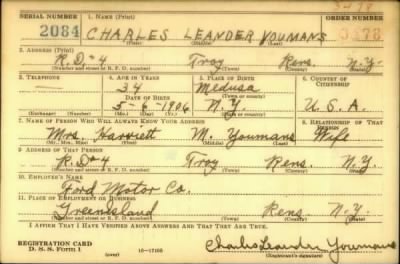 S-78
SERIAL NUMBER 1. NAME (Print) ORDER NUMBER
2084 CHARLES LEANDER YOUMANS
(First) (Middle) (Last)
2. ADDRESS (Print)
R.D#4 Troy Rens. N.Y.
(Number and street or R. F. D. number) (Town) (County) (State)
3. TELEPHONE 4. AGE IN YEARS 5. PLACE OF BIRTH 6. COUNTRY OF CITIZENSHIP
— 34 Medusa
DATE OF BIRTH (Town or county)
5-6-1906 N.Y. U.S.A.
(Exchange) (Number) (Mo.) (Day) (Yr.) (State or country)
7. NAME OF PERSON WHO WILL ALWAYS KNOW YOUR ADDRESS 8. RELATIONSHIP OF THAT PERSON
Mrs. Harriett M. Youmans Wife
(Mr., Mrs., Miss) (First) (Middle) (Last)
9. ADDRESS OF THAT PERSON
R.D#4 Troy Rens. N.Y.
(Number and street or R. F. D. number) (Town) (County) (State)
10. EMPLOYER'S NAME
Ford Motor Co.
11. PLACE OF EMPLOYMENT OR BUSINESS
Greenisland Rens. N.Y.
(Number and street or R. F. D. number) (Town) (County) (State)
I AFFIRM THAT I HAVE VERIFIED ABOVE ANSWERS AND THAT THEY ARE TRUE.
REGISTRATION CARD
D. S. S. FORM 1 (over) 16-17105 Charles Leander Youmans
(Registrant's signature)